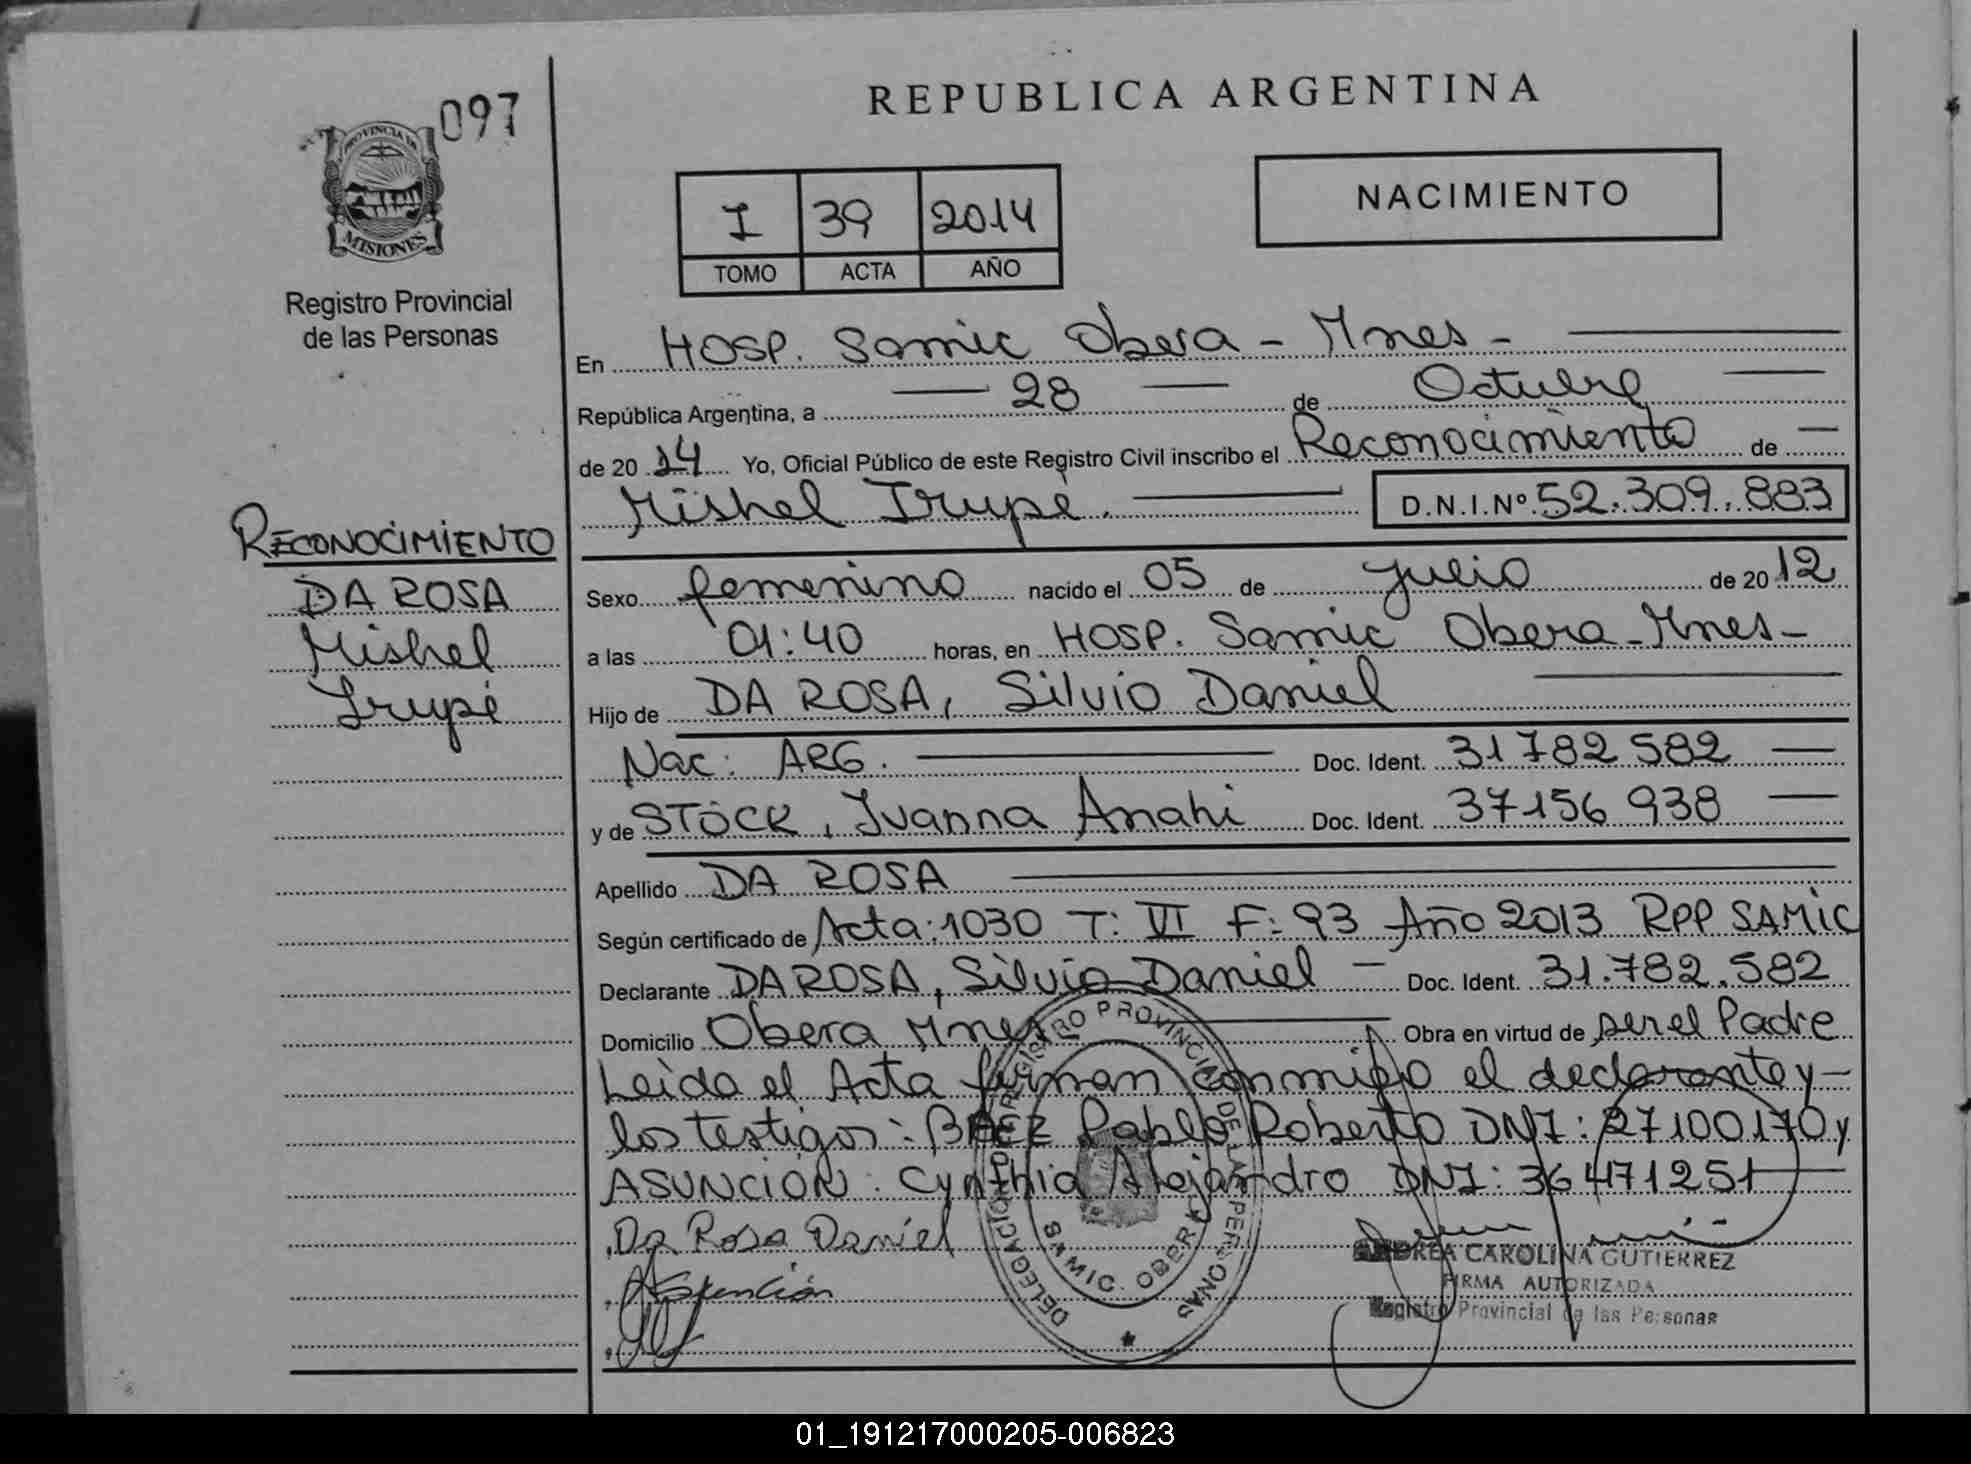 097
PROVINCIA DE
MISIONES
Registro Provincial
de las Personas
REPUBLICA ARGENTINA
I 39 2014
TOMO ACTA AÑO
NACIMIENTO
En HOSP. Samic Obera - Mnes -
República Argentina, a 28 de Octubre
de 2014 Yo, Oficial Público de este Registro Civil inscribo el Reconocimiento de
Mishel Irupé. D.N.I.Nº 52.309.883
RECONOCIMIENTO
DA ROSA
Mishel
Irupé
Sexo femenino nacido el 05 de julio de 2012
a las 01:40 horas, en HOSP. Samic Obera - Mnes -
Hijo de DA ROSA, Silvio Daniel
Nac: ARG. Doc. Ident. 31782582
y de STOCK, Ivanna Anahi Doc. Ident. 37156938
Apellido DA ROSA
Según certificado de Acta: 1030 T: VI F: 93 Año 2013 RPP SAMIC
Declarante DA ROSA, Silvio Daniel - Doc. Ident. 31.782.582
Domicilio Obera Mnes Obra en virtud de ser el Padre
Leida el Acta firman conmigo el declarante y -
los testigos: BAEZ Pablo Roberto DNI: 27100170 y
ASUNCIÓN: Cynthia Alejandro DNI: 36471251
Da Rosa Daniel
Asunción
DELEGACION REGISTRO PROVINCIAL DE LAS PERSONAS
SAMIC. OBERA
ANDREA CAROLINA GUTIERREZ
FIRMA AUTORIZADA
Registro Provincial de las Personas
01_191217000205-006823